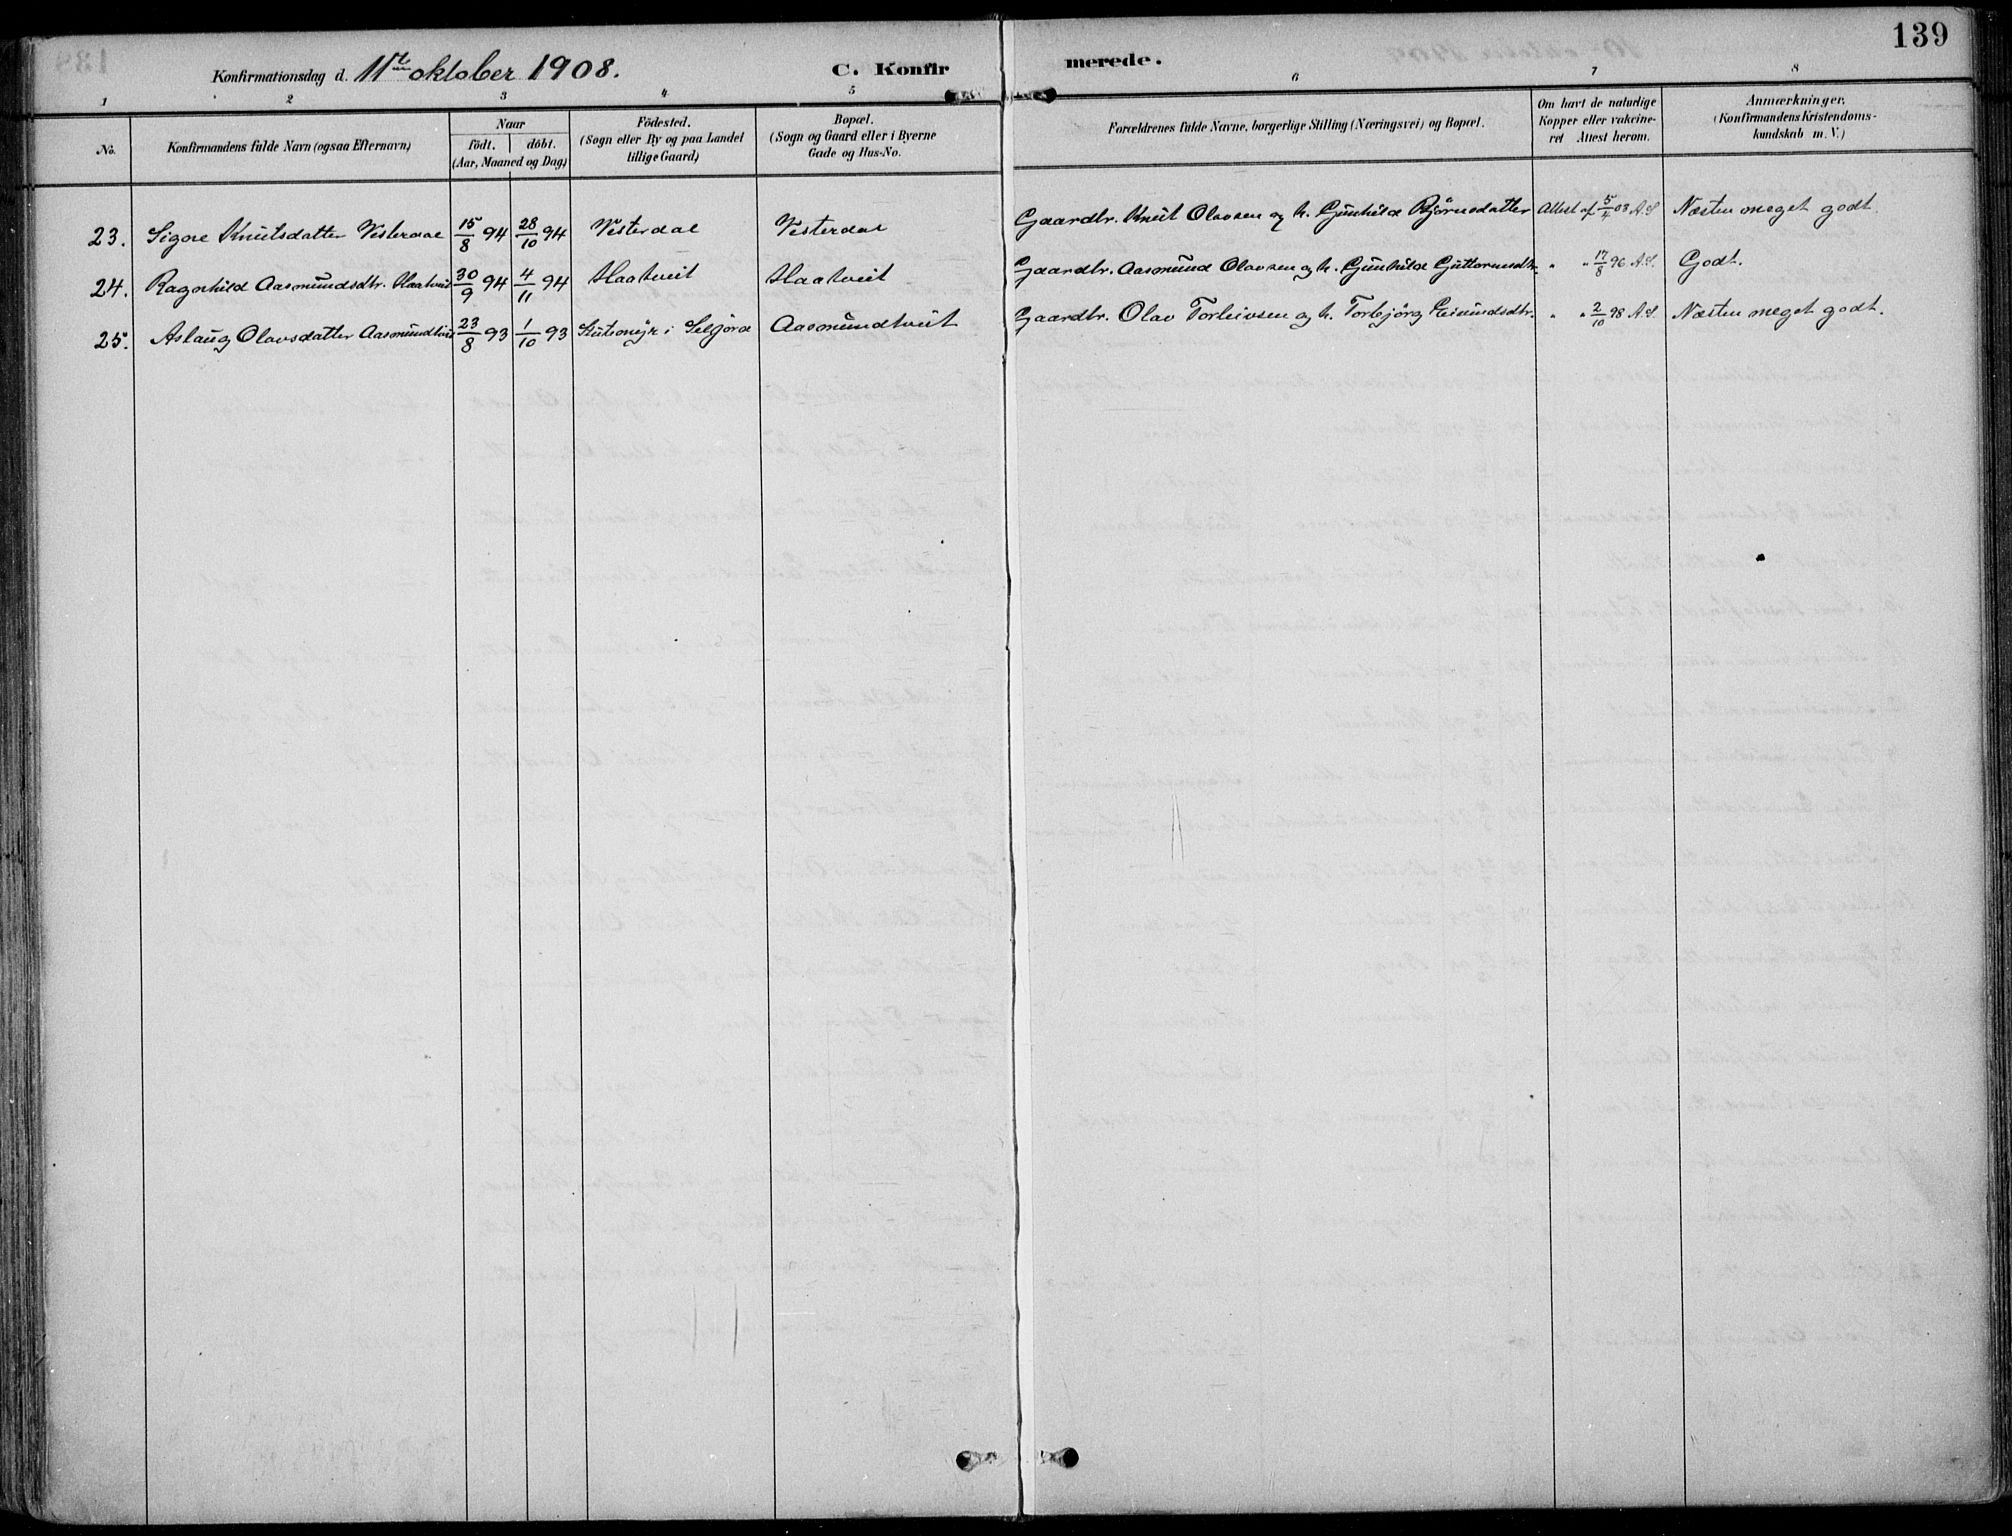 139
Konfirmationsdag d. 11te oktober 1908. C. Konfirmerede.
1 2 3 4 5 6 7 8
No. Konfirmandens fulde Navn (ogsaa Efternavn) Naar födt. döbt. (Aar, Maaned og Dag) Födested. (Sogn eller By og paa Landet tillige Gaard) Bopæl. (Sogn og Gaard eller i Byerne Gade og Hus-No. Forældrenes fulde Navne, borgerlige Stilling (Næringsvei) og Bopæl. Om havt de naturlige Kopper eller vakcineret Attest herom. Anmærkninger, (Konfirmandens Kristendomskundskab m. V.)
23. Signe Knutsdatter Vesterdal 15/8 94 28/10 94 Vesterdal Vesterdal Gaardbr. Knut Olavsen og h. Gunhild Björnsdatter Attest af 5/4 03 A.S. Næsten meget godt.
24. Ragnhild Aasmundsdtr. Haatveit 30/9 94 4/11 94 Haatveit Haatveit Gaardbr. Aasmund Olavsen og h. Gunhild Guttormsdtr. " " 17/8 96 A.S. Godt.
25. Aslaug Olavsdatter Aasmundtveit 23/8 93 1/10 93 i Seljord Aasmundtveit Gaardbr. Olav Torleivsen og h. Torbjörg Eivindsdtr. " " 2/10 98 A.S. Næsten meget godt.